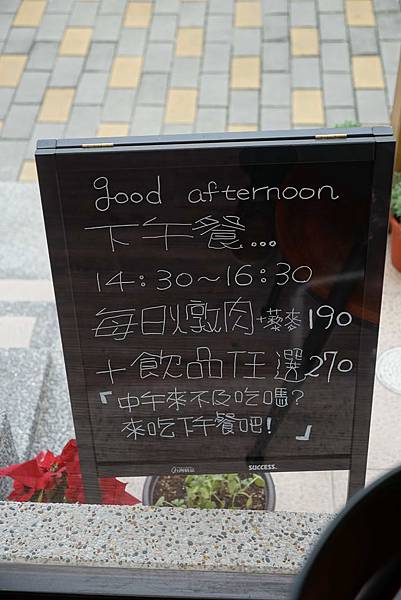 good afternoon
下午餐...
14:30～16:30
每日燉肉+藜麥190
+飲品任選270
「中午來不及吃嗎?
來吃下午餐吧!」
SUCCESS.